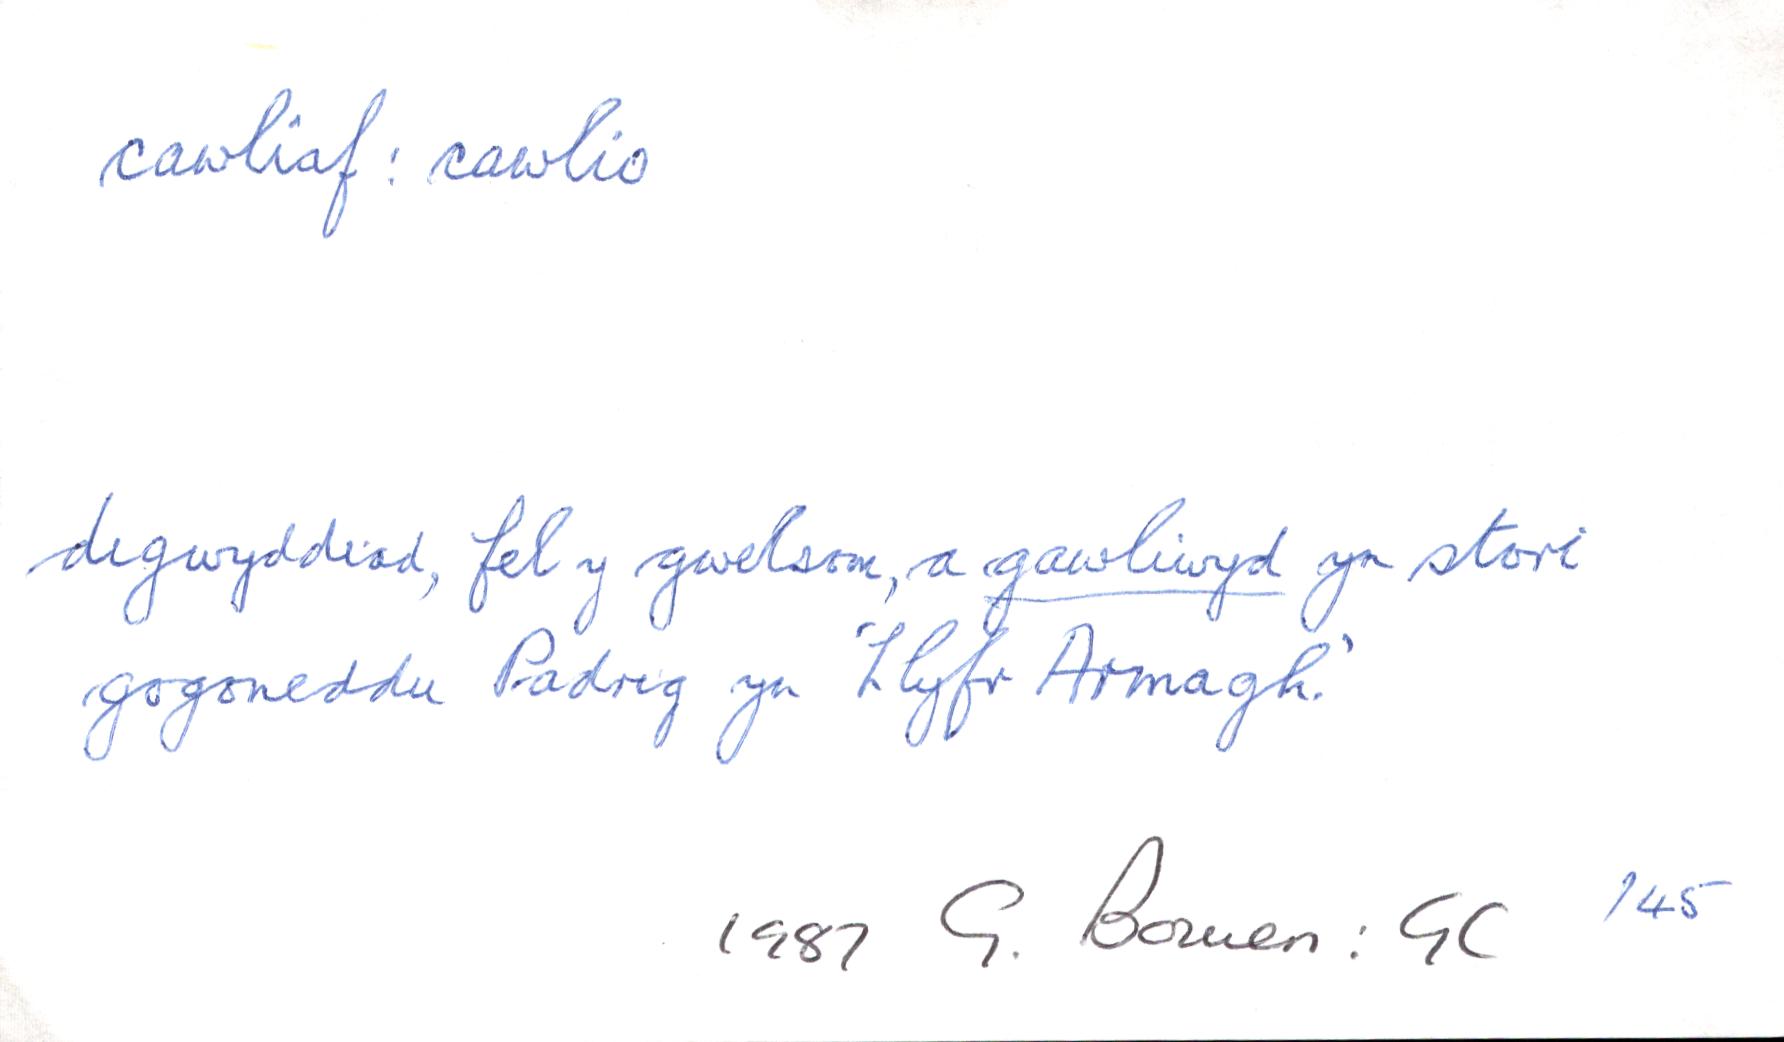 cawliaf: cawlio
digwyddiad, fel y gwelsom, a gawliwyd yn stori
gogoneddu Padrig yn 'Llyfr Armagh.'
1987 G. Bowen: GC 145